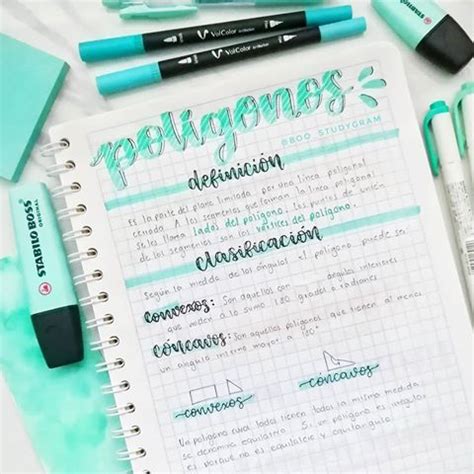 VulColor
VulColor
polígonos
@BOO_STUDYGRAM
definición
Es la parte del plano limitada por una línea poligonal
cerrada. A los segmentos que forman la línea poligonal
se les llama lados del polígono, los puntos de unión
de los segmentos son los vértices del polígono.
clasificación
Según la medida de los ángulos el polígono puede ser
CONVEXOS: Son aquellos con ángulos interiores
que miden a lo sumo 180 grados o radianes
CÓNCAVOS: Son aquellos polígonos que tienen al menos
un ángulo interno mayor a 180°
convexos
cóncavos
Un polígono cuyos lados tienen todos la misma medida
se denomina equilátero. Si un polígono es irregular
es porque no es equilátero y equiángulo.
STABILO BOSS
ORIGINAL